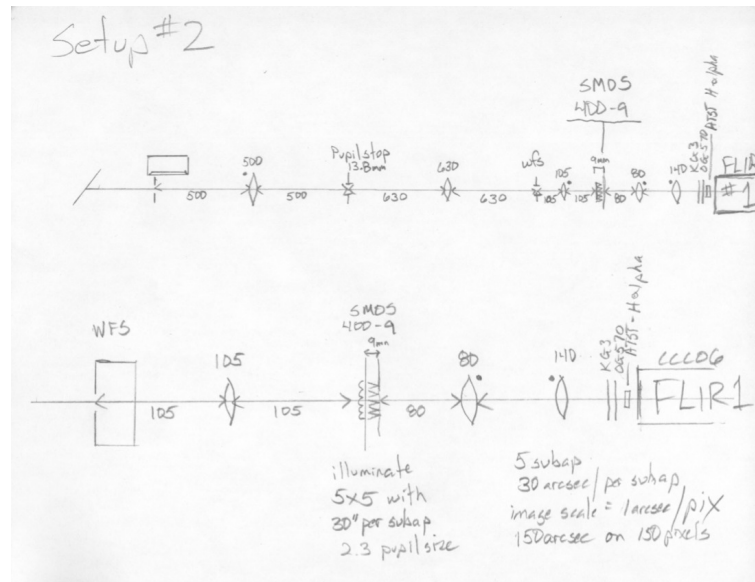 Setup #2
SMDS
400-9
9mm
Pupil stop
13.8mm
wfs
500
630
105
80
140
KG3
OG570
ATST Halpha
FLIR
#1
500
500
630
630
105
105
80
WFS
SMDS
400-9
9mm
105
80
140
KG3
OG570
ATST-Halpha
CCCD6
FLIR1
105
105
80
illuminate
5x5 with
30" per subap
2.3 pupil size
5 subap
30 arcsec/per subap
image scale = 1 arcsec/pix
150 arcsec on 150 pixels